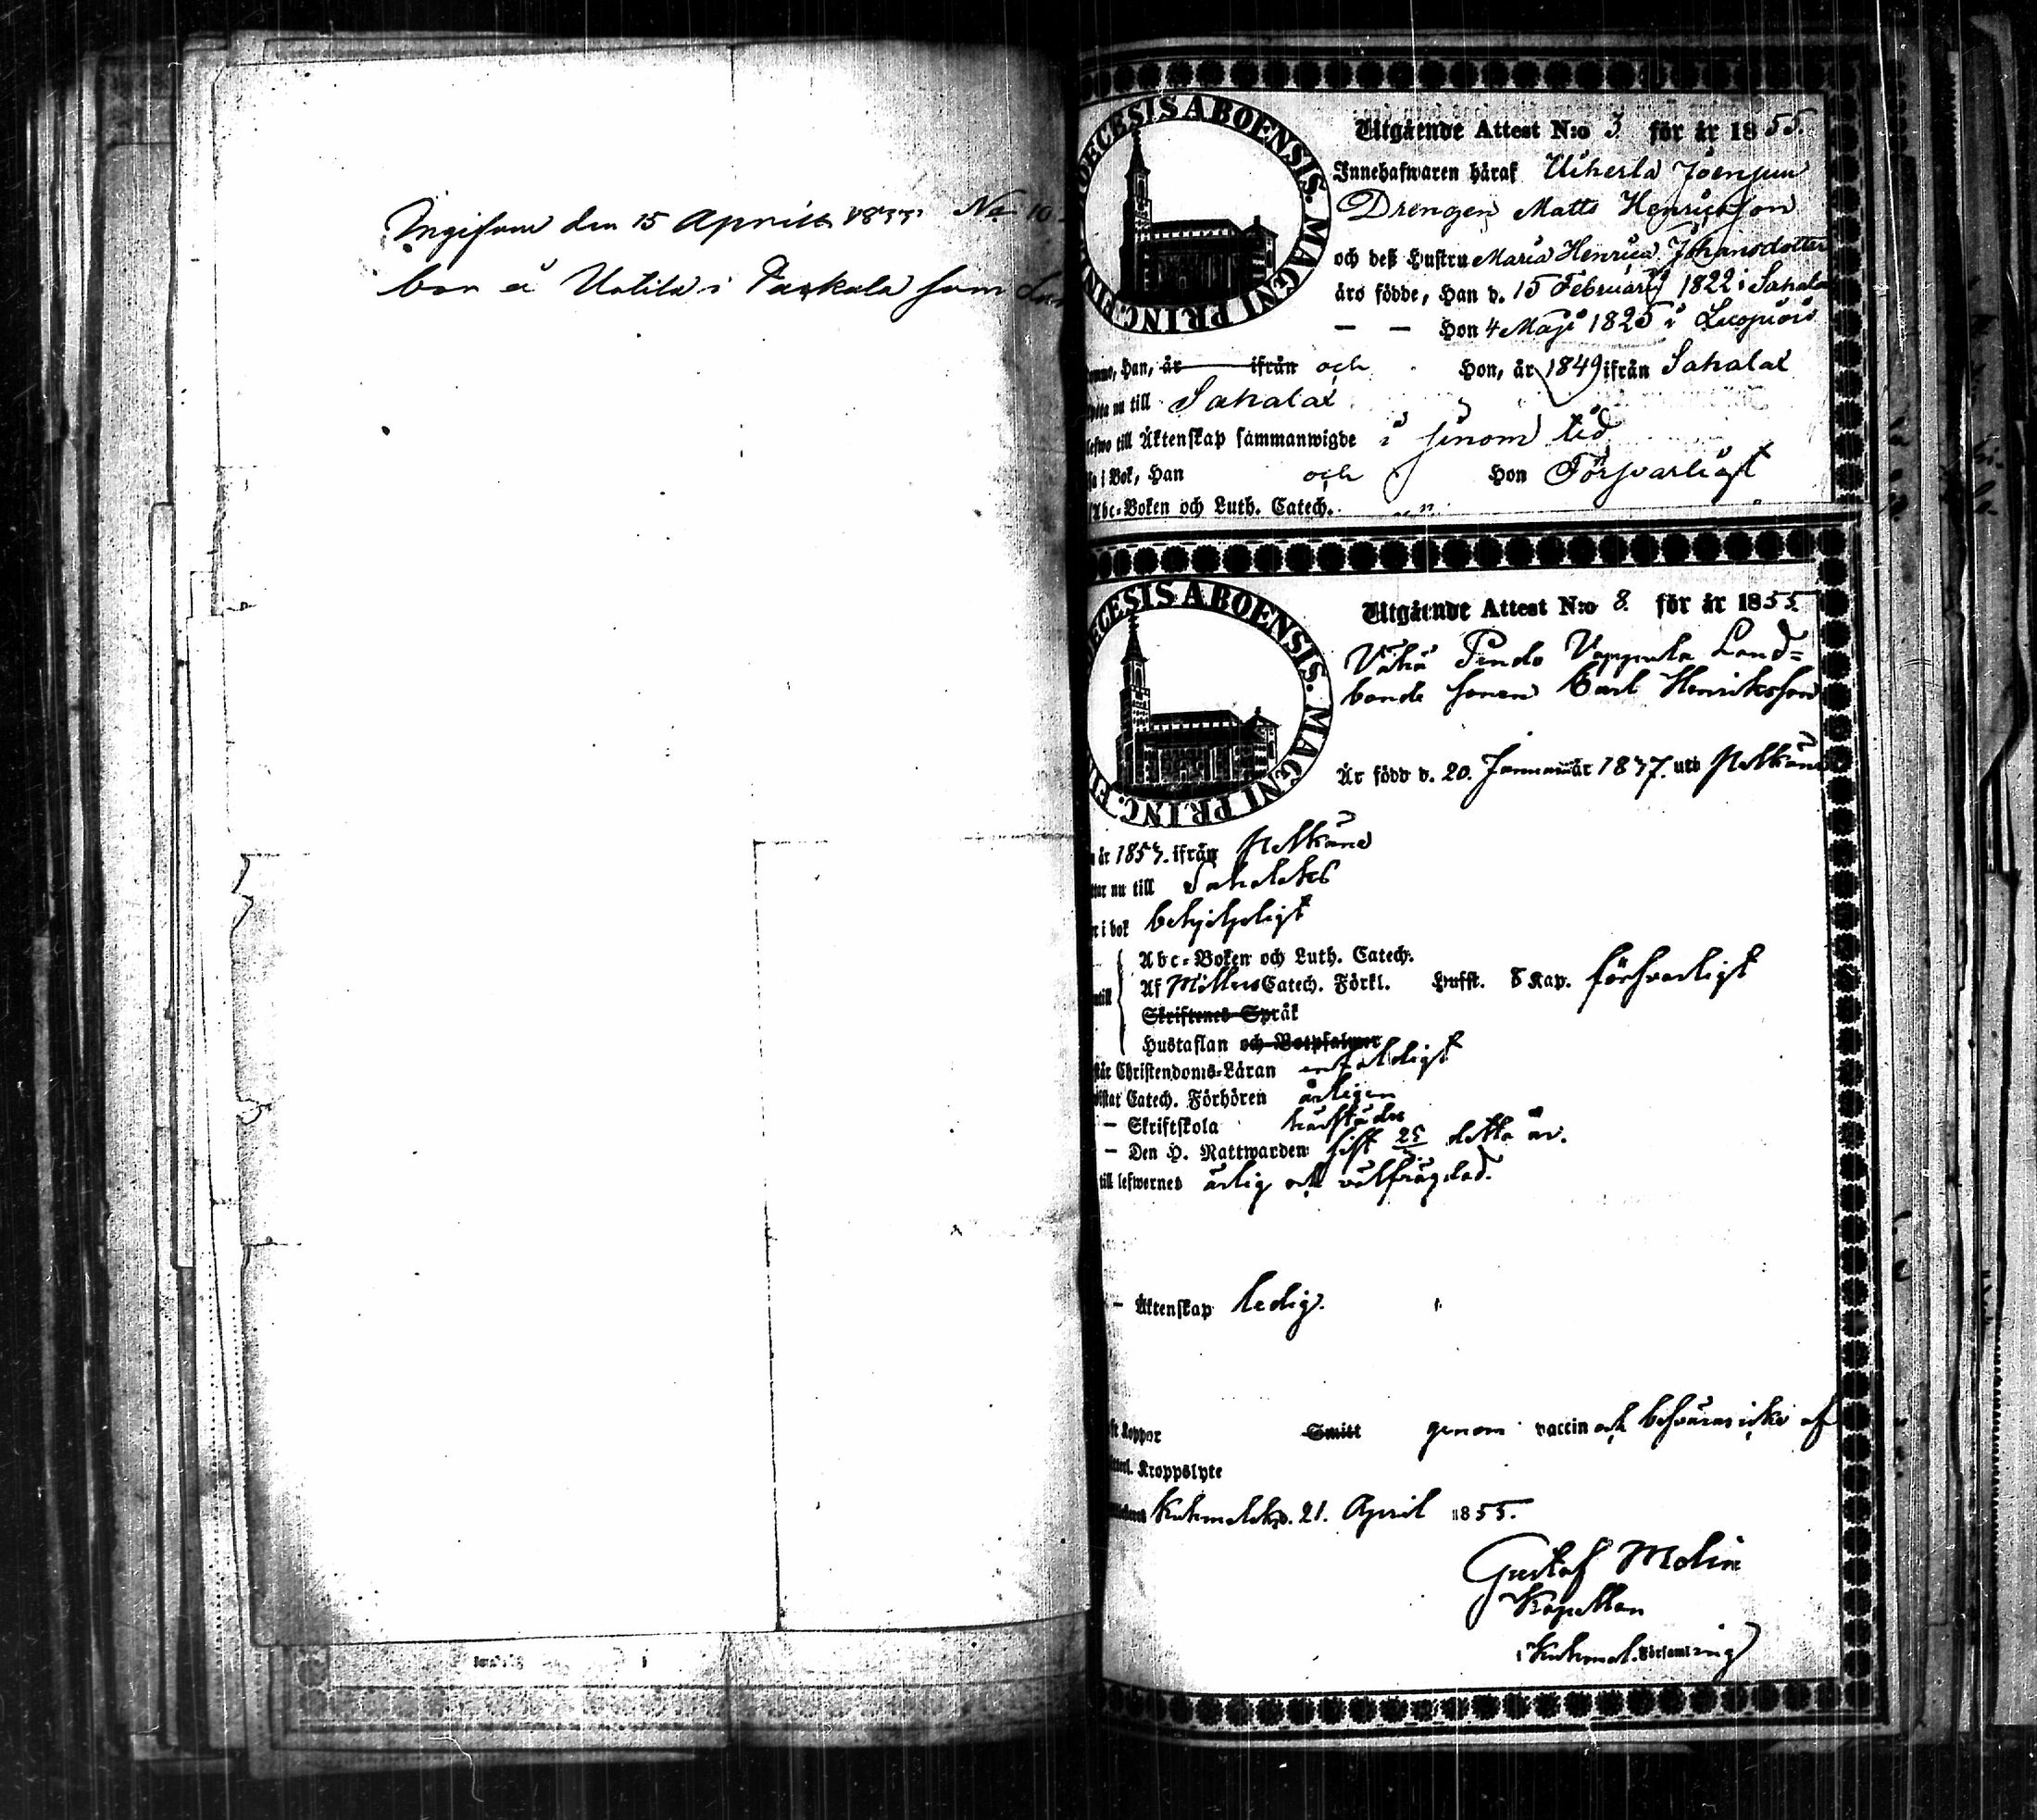 Ingifven den 15 Aprill 1855 No 10
bor å Uotila i Paakala som
DIOECESIS ABOENSIS. MAGNI PRINC. FINL
Utgående Attest N:o 3 för år 1855.
Innehafwaren häraf Uiherla Joensuu
Drengen Matts Henricsson
och deß Hustru Maria Henrica Johansdotter
äro födde, Han d. 15 Februarii 1822 i Sahala
— — Hon 4 Maji 1825 i Luopiois
Han, år ifrån och Hon, år 1849 ifrån Sahalax
nu till Sahalax
till Äktenskap sammanwigde i sinom tid
i Bok, Han och Hon Försvarligt
Abc-Boken och Luth. Catech.
DIOECESIS ABOENSIS. MAGNI PRINC. FINL
Utgående Attest N:o 8. för år 1855.
Vähä Pendo Vappula Land=
bonde sonen Carl Henriksson
Är född d. 20. Januari år 1837. uti Pelkäne
år 1854. ifrån Pelkäne
nu till Sahalaks
i bok behjelpligt
Abc-Boken och Luth. Catech.
Af Möllers Catech. Förkl. Hufst. 8 Kap. försvarligt
Skriftenes Språk
Hustaflan och Botpsalmer
Christendoms-Läran enfaldigt
Catech. Förhören årligen
— Skriftskola härstädes
— Den H. Nattwarden sist 25 detta år.
till lefwernes ärlig och välfrägdad.
— Äktenskap ledig.
Koppor Smitt genom vaccin och besväras icke af
Kroppslyte
Kuhmalaks d. 21. April 1855.
Gustaf Molin
Kapellan
i Kuhmal. Församling